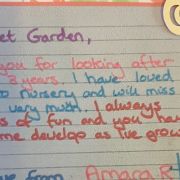 et Garden,
you for looking after
3 years. I have loved
to nursery and will miss
very much. I always
s of fun and you have
me develop as I've grow
ve from Amara R